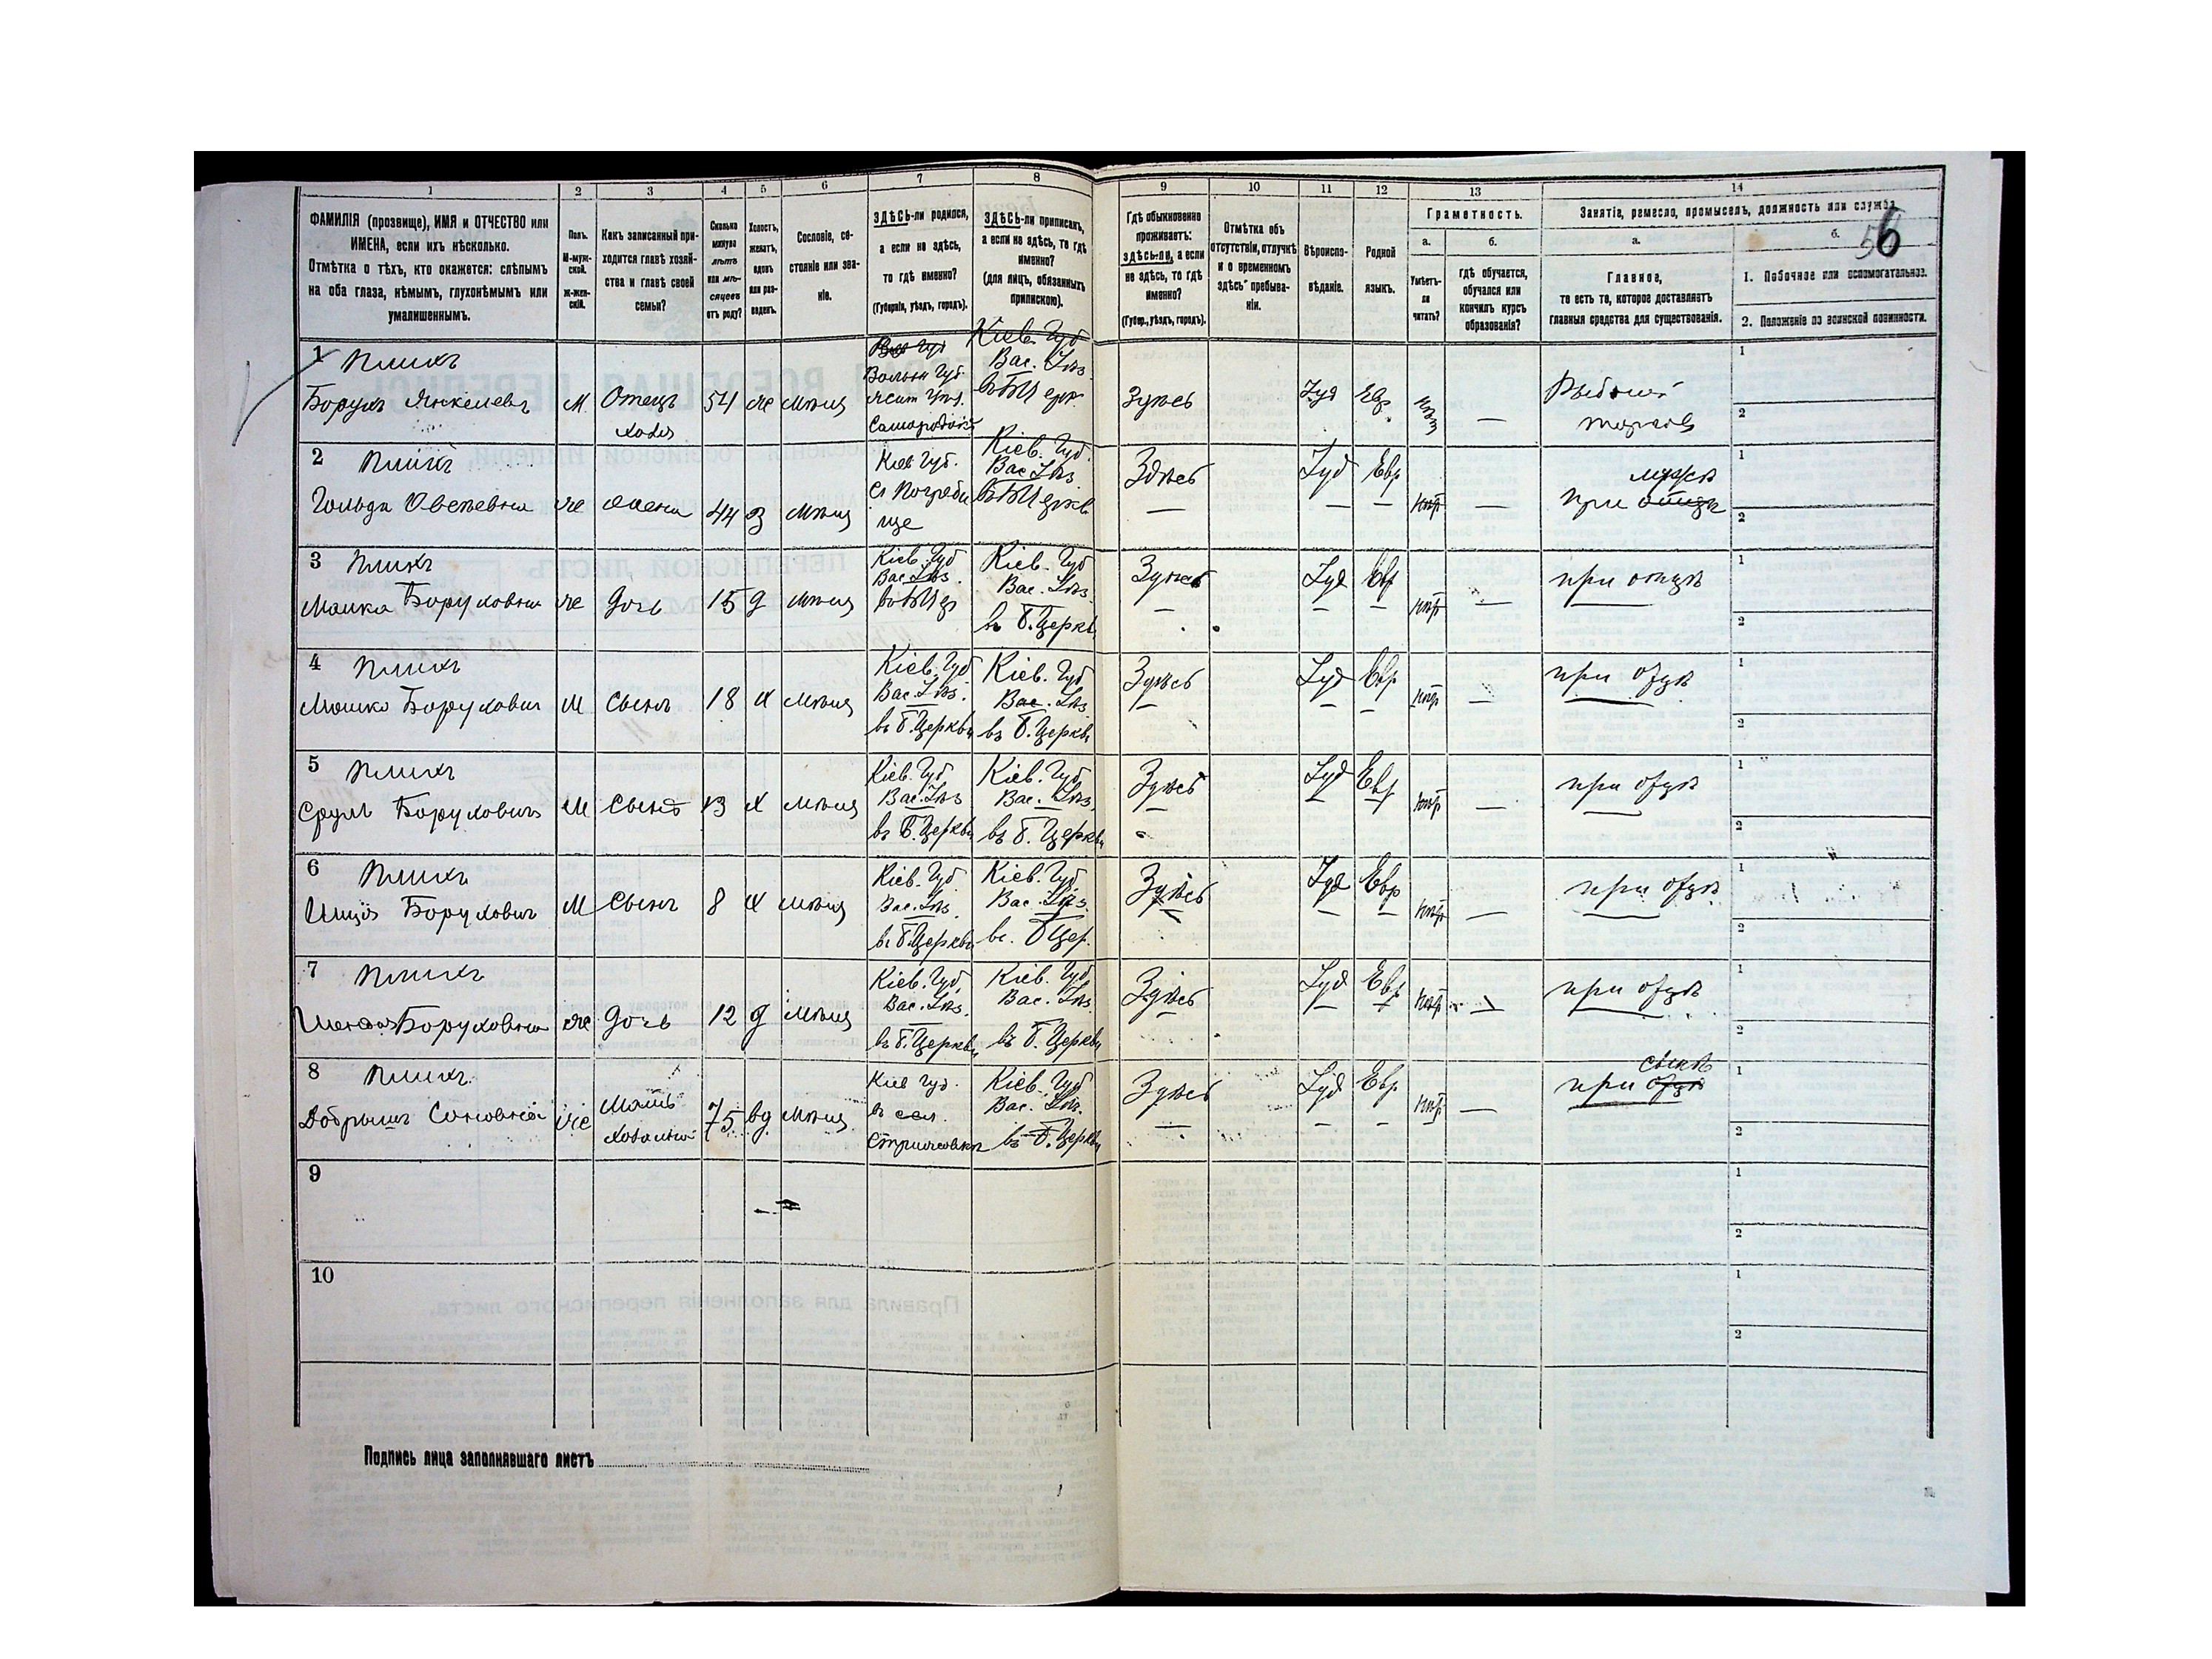 1 2 3 4 5 6 7 8 9 10 11 12 13 14
ФАМИЛІЯ (прозвище), ИМЯ и ОТЧЕСТВО или
ИМЕНА, если ихъ нѣсколько.
Отмѣтка о тѣхъ, кто окажется: слѣпымъ
на оба глаза, нѣмымъ, глухонѣмымъ или
умалишеннымъ.
Полъ.
М-муж-
ской.
ж-жен-
скій.
Какъ записанный при-
ходится главѣ хозяй-
ства и главѣ своей
семьи?
Сколько
минуло
лѣтъ
или мѣ-
сяцевъ
отъ роду?
Холостъ,
женатъ,
вдовъ
или раз-
веденъ.
Сословіе, со-
стояніе или зва-
ніе.
ЗДѢСЬ-ли родился,
а если не здѣсь,
то гдѣ именно?
(Губернія, уѣздъ, городъ).
ЗДѢСЬ-ли приписанъ,
а если не здѣсь, то гдѣ
именно?
(для лицъ, обязанныхъ
припискою).
Гдѣ обыкновенно
проживаетъ:
здѣсь-ли, а если
не здѣсь, то гдѣ
именно?
(Губер., уѣздъ, городъ).
Отмѣтка объ
отсутствіи, отлучкѣ
и о временномъ
здѣсь пребыва-
ніи.
Вѣроиспо-
вѣданіе.
Родной
языкъ.
Грамотность.
а.
Умѣетъ-
ли
читать?
б.
гдѣ обучается,
обучался или
кончилъ курсъ
образованія?
Занятіе, ремесло, промыселъ, должность или служба.
а.
Главное,
то есть то, которое доставляетъ
главныя средства для существованія.
б.
56
1. Побочное или вспомогательное.
2. Положеніе по воинской повинности.
1 Пликъ
Борухъ Янкелевъ М. Отецъ 54 же мѣщ
Волын Губ.
Кіев. Губ
Вас. Уѣз.
Здѣсь Іуд Евр —
торговл
1
2
2 Пликъ
Гольда же жена 44 З мѣщ
Кіев Губ.
Кіев. Губ.
Вас Уѣз
Здѣсь — Іуд — Евр — нѣт —
при отцѣ
мужѣ
1
2
3 Пликъ
Боруховна же дочь 15 д мѣщ
Кіев. Губ
Вас. Уѣз.
Кіев. Губ
Вас. Уѣз.
въ Б. Церкв
Здѣсь — Іуд — Евр — нѣт —
при отцѣ
1
2
4 Пликъ
Мошко Борухович М Сынъ 18 х мѣщ
Кіев. Губ
Вас. Уѣз.
въ Б. Церкви
Кіев. Губ
Вас. Уѣз
въ Б. Церкви
Здѣсь — Іуд — Евр — нѣт —
при отцѣ
1
2
5 Пликъ
Сруль Боруховичъ М Сынъ 13 х мѣщ
Кіев. Губ
Вас. Уѣз
въ Б. Церкви
Кіев. Губ
Вас. Уѣз.
въ Б. Церкви
Здѣсь — Іуд — Евр — нѣт —
при отцѣ
1
2
6 Пликъ
Борухович М Сынъ 8 х мѣщ
Кіев. Губ.
Вас. Уѣз.
въ Б. Церкви
Кіев. Губ
Вас. Уѣз.
въ Б Цер.
Здѣсь — Іуд — Евр — нѣт —
при отцѣ
1
2
7 Пликъ
Боруховна же дочь 12 д мѣщ
Кіев. Губ.
Вас. Уѣз.
въ Б. Церкви
Кіев. Губ
Вас. Уѣз.
въ Б. Церкви
Здѣсь — Іуд — Евр — нѣт —
при отцѣ
1
2
8 Пликъ
Добрышъ же Мать 75 вд мѣщ
Кіев Губ.
Кіев. Губ
Вас. Уѣз.
въ Б. Церкви
Здѣсь — Іуд — Евр — нѣт —
при отцѣ
сынѣ
1
2
9
1
2
10
1
2
Подпись лица заполнявшаго листъ